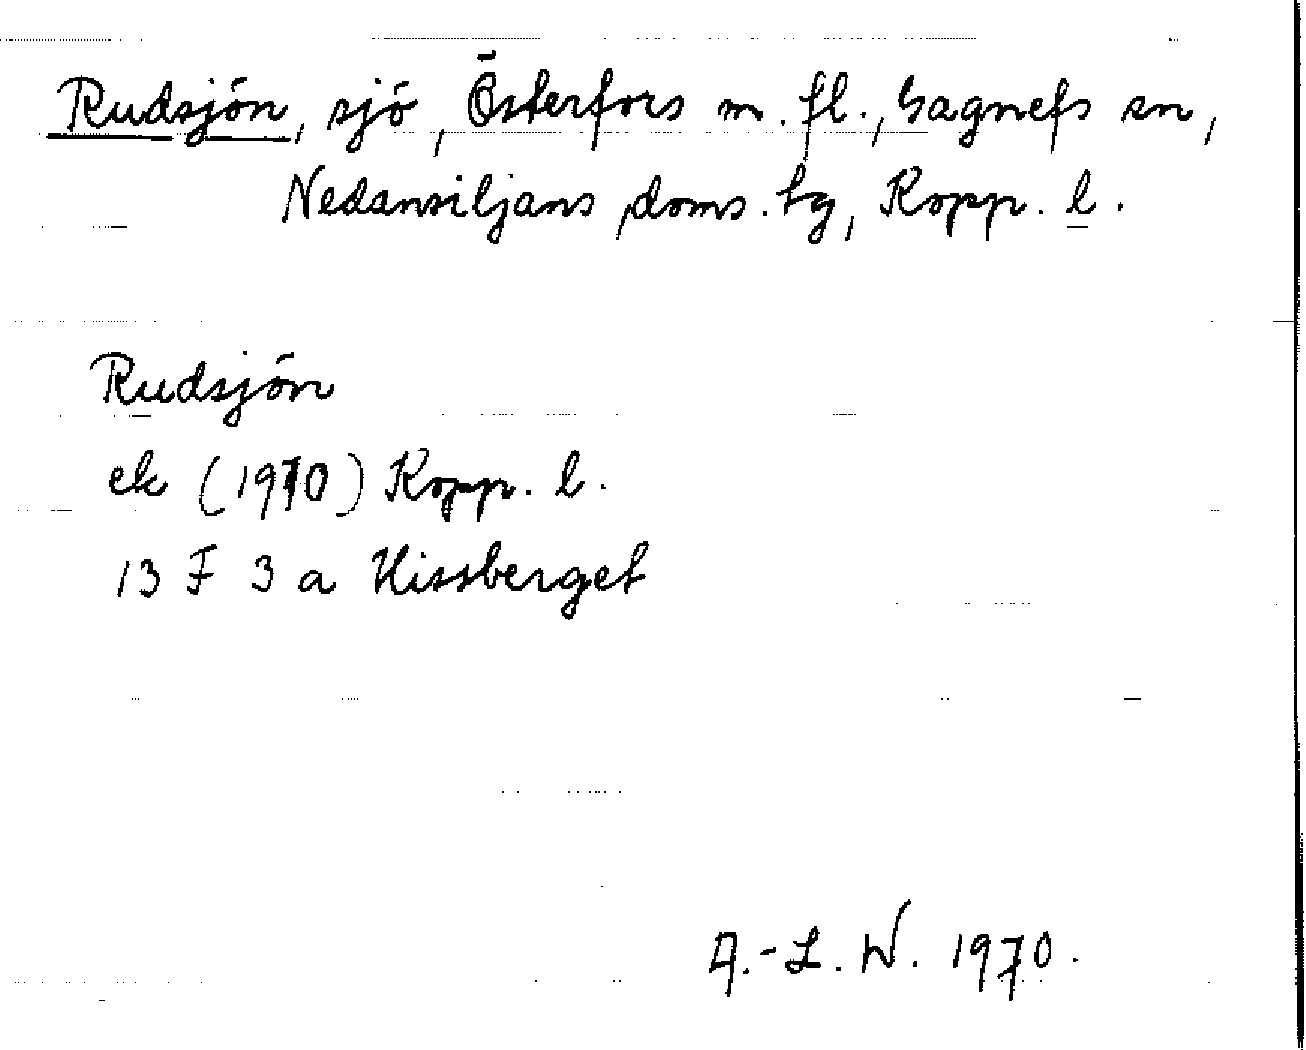 Rudsjön, sjö, Österfors m. fl., Gagnefs sn,
Nedansiljans doms. tg, Kopp. l.
Rudsjön
ek (1970) Kopp. l.
13 F 3 a Hissberget
A.-L. W. 1970.